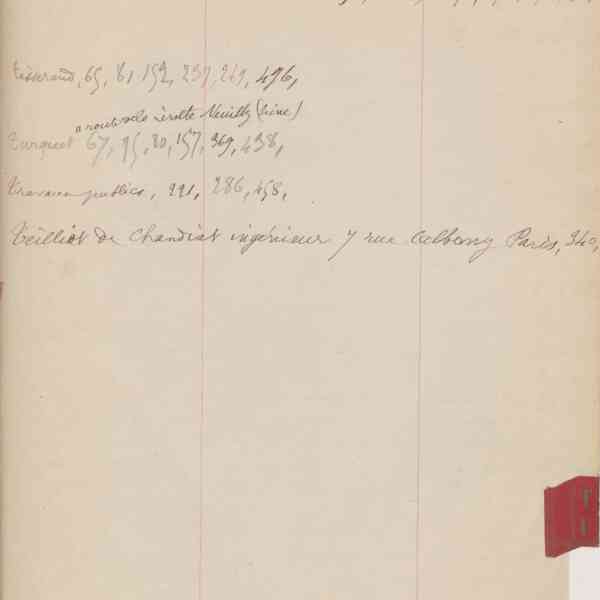 Tisserand, 65, 81, 152, 237, 269, 496,
Neuilly (Seine)
Turquet 67, 75, 80, 157, 369, 438,
Travaux publics, 221, 286, 458,
Teilliot de Chandiat ingénieur 7 rue Paris, 340,
T